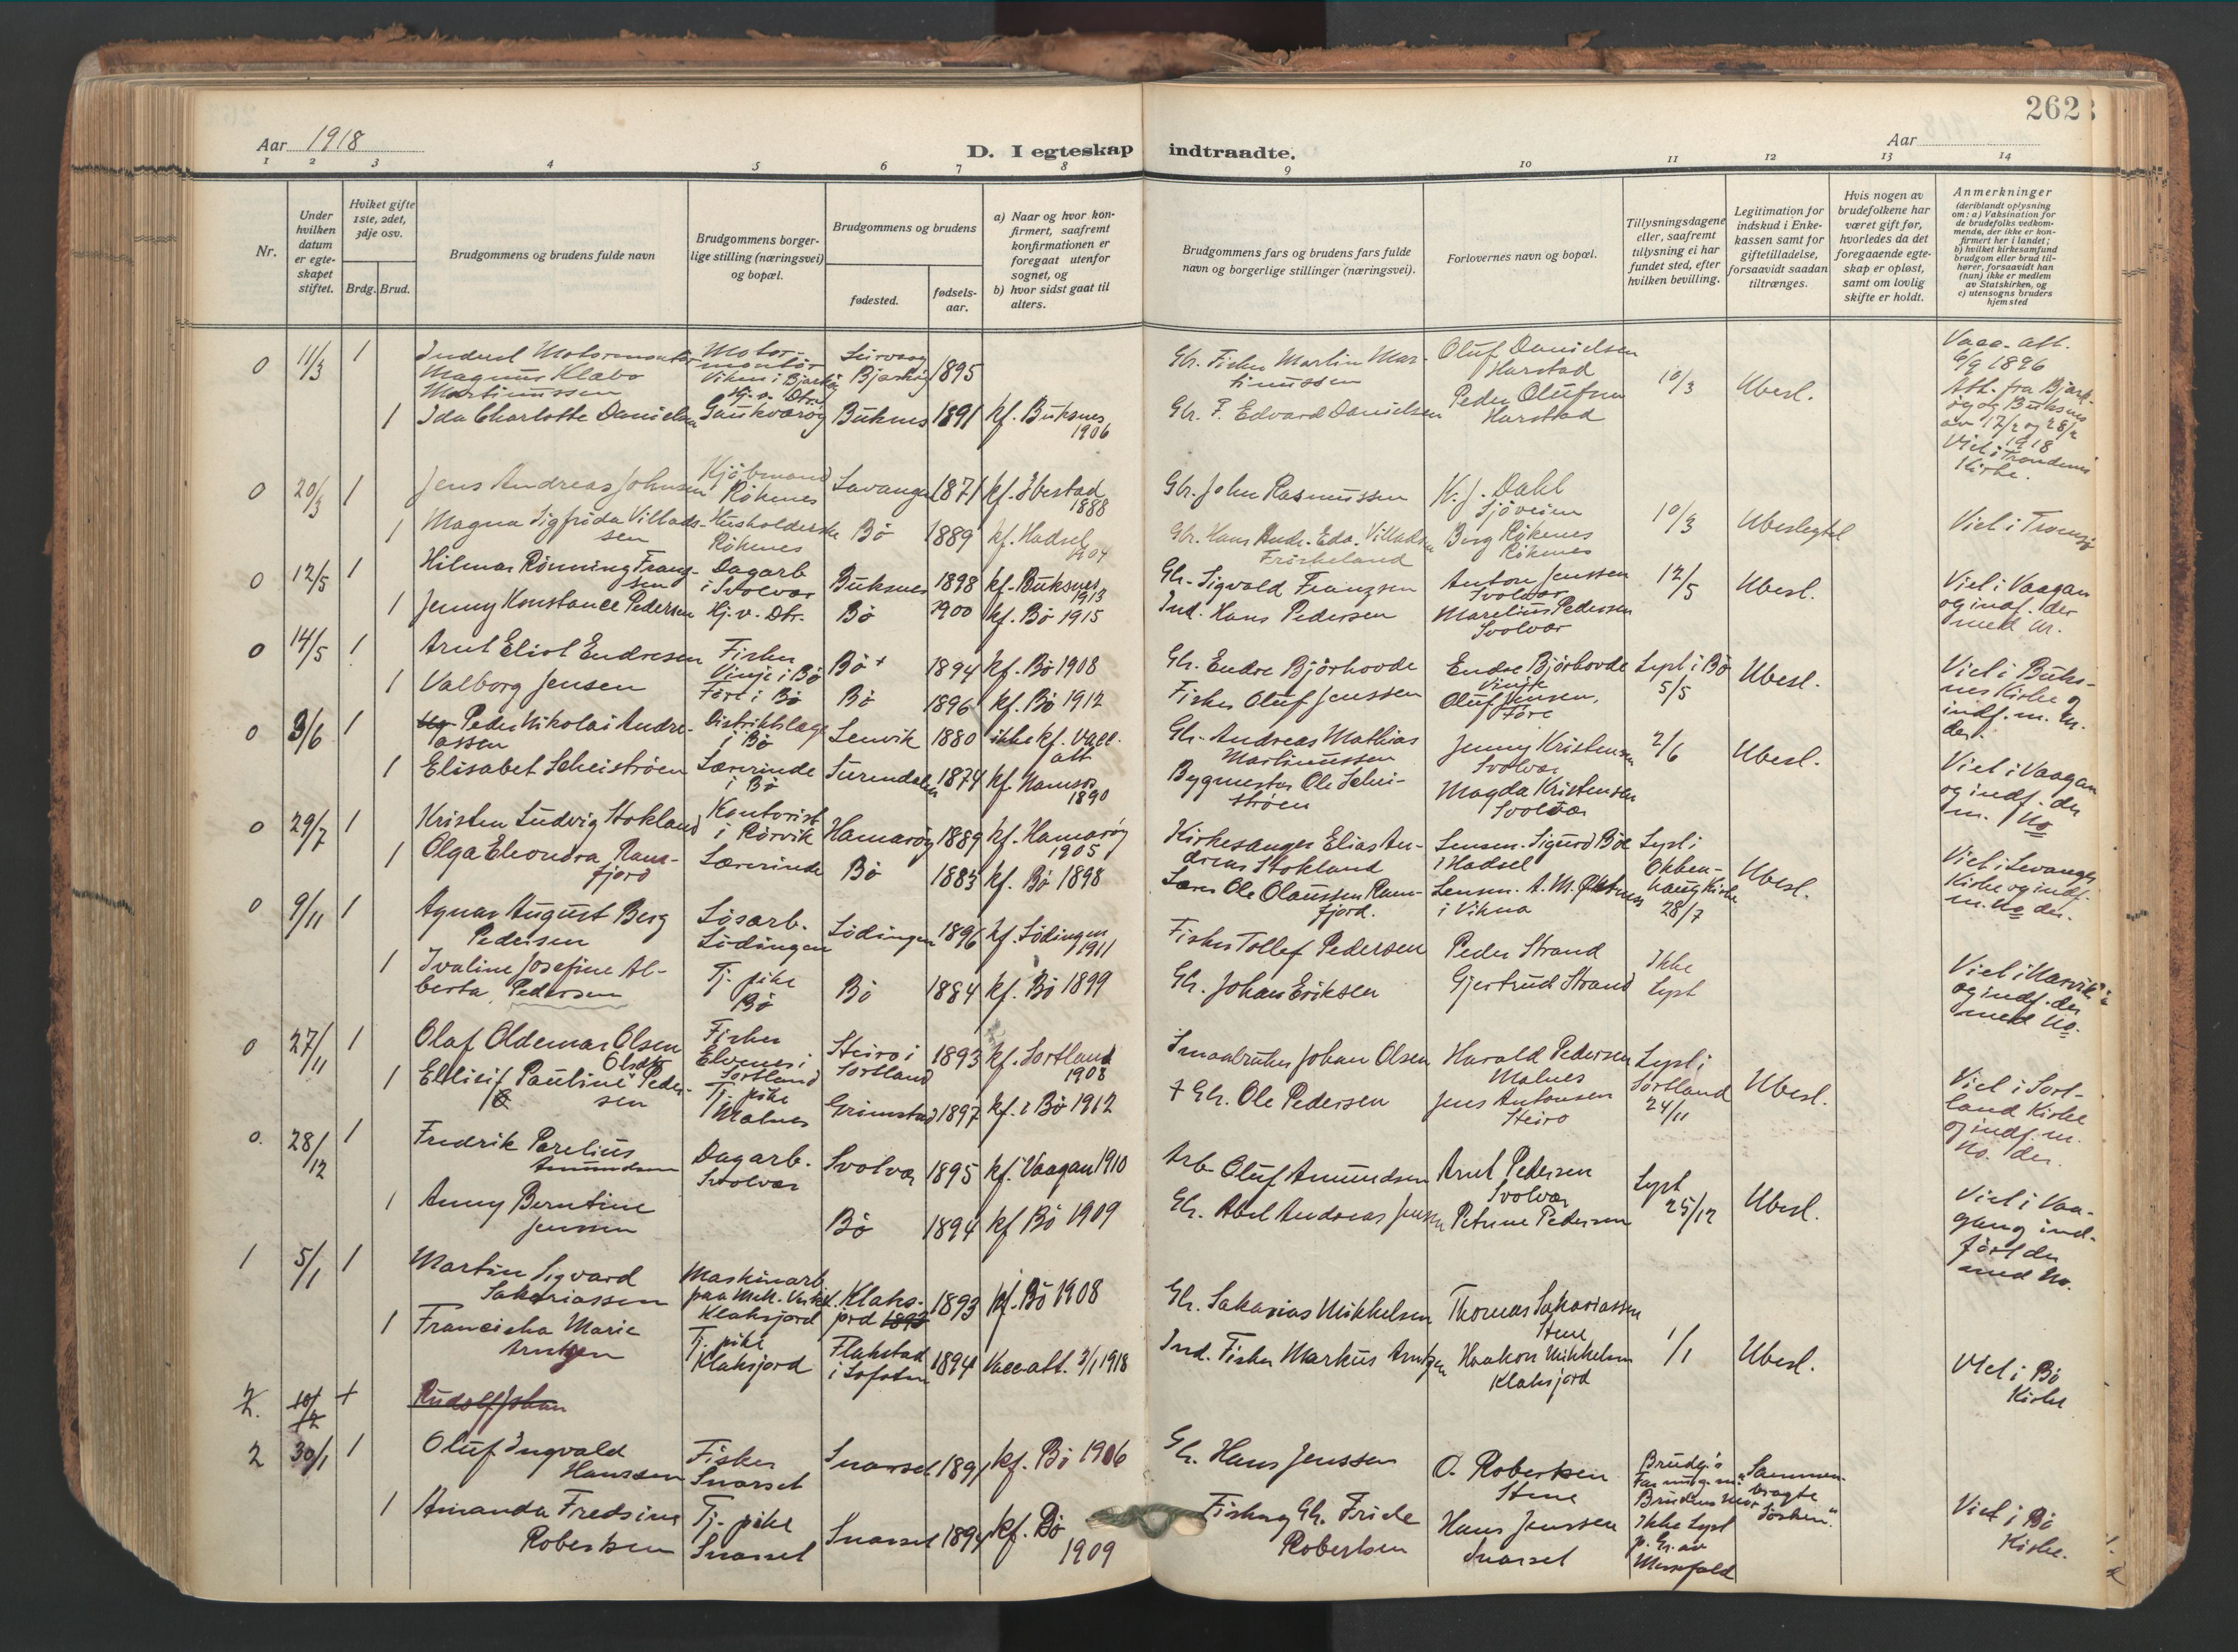 262
Aar 1918
D. I egteskap indtraadte.
Aar
1 2 3 4 5 6 7 8 9 10 11 12 13 14
Nr.
Under hvilken datum er egteskapet stiftet.
Hviket gifte 1ste, 2det, 3dje osv.
Brdg. Brud.
Brudgommens og brudens fulde navn
Brudgommens borgerlige stilling (næringsvei) og bopæl.
Brudgommens og brudens
fødested.
fødselsaar.
a) Naar og hvor konfirmert, saafremt konfirmationen er foregaat utenfor sognet, og
b) hvor sidst gaat til alters.
Brudgommens fars og brudens fars fulde navn og borgerlige stillinger (næringsvei).
Forlovernes navn og bopæl.
Tillysningsdagene eller, saafremt tillysning ei har fundet sted, efter hvilken bevilling.
Legitimation for indskud i Enkekassen samt for giftetilladelse, forsaavidt saadan tiltrænges.
Hvis nogen av brudefolkene har været gift før, hvorledes da det foregaaende egteskap er opløst, samt om lovlig skifte er holdt.
Anmerkninger
(deriblandt oplysning om: a) Vaksination for de brudefolks vedkommende, der ikke er konfirmert her i landet;
b) hvilket kirkesamfund brudgom eller brud tilhører, forsaavidt han (hun) ikke er medlem av Statskirken, og
c) utensogns bruders hjemsted
0 11/3 1 Magnus Klæbo Martinussen Motormontör Bjarköy 1895 Gbr. Fisker Martin Martinussen Oluf Danielsen Harstad 10/3 Ubesl. Vacc. att. 6/9 1896
1 Ida Charlotte Danielsen Buksnes 1891 kf. Buksnes 1906 Gbr. F. Edvard Danielsen Peder Olufsen Harstad Att. fra Bjarköy og Buksnes
0 20/3 1 Jens Andreas Johnsen Kjöbmand Rökenes Lavangen 1871 kf. Ibestad 1888 Gbr. John Rasmussen Dahl Sjöveien 10/3 Ubeslegtet Viet i Tromsö
1 Magna Sigfrida Villadsen Rökenes Bö 1889 kf. Hadsel 1904 Gbr. Hans Andr. Edv. Villadsen Berg Rökenes Rökenes
0 12/5 1 Hilmar Rönning Franzsen Dagarb i Svolvær Buksnes 1898 kf. Buksnes 1913 Gbr. Sigvald Franzsen Anton Jenssen Svolvær 12/5 Ubesl. Viet i Vaagan og indf. der med nr.
1 Jenny Konstance Pedersen Hj. v. Dtr. Bö 1900 kf. Bö 1915 Ind. Hans Pedersen Marelius Pedersen Svolvær
0 14/5 1 Arnt Eliot Endresen Fisker Vinje i Bö Bö 1894 kf. Bö 1908 Gbr. Endre Björhovde Endre Björhovde Vinje Lyst i Bö 5/5 Ubesl. Viet i Buksnes Kirke og indf. m. nr. der.
1 Valborg Jensen Före i Bö Bö 1896 kf. Bö 1912 Fisker Oluf Jenssen Oluf Jensen, Före
0 3/6 1 Peder Nikolai Andreassen Distriktslæge i Bö Lenvik 1880 ikke kf. Vacc. att Gbr. Andreas Mathias Martinussen Jenny Kristensen Svolvær 2/6 Ubesl. Viet i Vaagan og indf. der m. No
1 Elisabet Scheiströen Lærerinde i Bö Surendalen 1874 kf. Namsos 1890 Bygmester Ole Scheiströen Magda Kristensen Svolvær
0 29/7 1 Kristen Ludvig Stokland Kontorist i Rörvik Hamaröy 1889 kf. Hamaröy 1905 Kirkesanger Elias Andreas Stokland Lensm. Sigurd Böe i Hadsel Lyst i Okkenhaug Kirke 28/7 Ubesl. Viet i Levanger Kirke og indf. m. No der.
1 Olga Eleonora Ramfjord Lærerinde Bö 1883 kf. Bö 1898 Lærer Ole Olaussen Ramfjord. Lensm. A. M. i Vikna
0 9/11 1 Agnar August Berg Pedersen Lösarb. Lödingen Lödingen 1896 kf. Lödingen 1911 Fisker Tollef Pedersen Peder Strand Ikke Lyst Viet i Narvik og indf. der med No.
1 Ivaline Josefine Alberta Pedersen Tj. pike Bö Bö 1884 kf. Bö 1899 Gbr. Johan Eriksen Gjertrud Strand
0 27/11 1 Olaf Oldemar Olsen Fisker Elvenes i Sortland Steiro i Sortland 1893 kf. Sortland 1908 Smaabruker Johan Olsen Harald Pedersen Malnes Lyst i Sortland 24/11 Ubesl. Viet i Sortland Kirke og indf. m. No. der.
1 Ellisif Pauline Olsdtr Pedersen Tj. pike Malnes Grimstad 1897 kf. i Bö 1912 + Gbr. Ole Pedersen Jens Antonsen Steiro
0. 28/12 1 Fredrik Parelius Amundsen Dagarb. Svolvær Svolvær 1895 kf. Vaagan 1910 Arb Oluf Amundsen Arnt Pedersen Svolvær Lyst 25/12 Ubesl. Viet i Vaagan og indfört der med No.
1 Anny Berntine Jenssen Bö 1894 kf Bö 1909 Gbr. Abel Andreas Jenssen Petrine Pedersen
1 5/1 1 Martin Sigvard Sakariassen Maskinarb. paa Mek. Verkst. Klaksjord Klaksjord 1893 kf. Bö 1908 Gbr. Sakarias Mikkelsen Thomas Sakariassen Stene 1/1 Ubesl. Viet i Bö Kirke
1 Franciska Marie Arntzen Tj. pike Klaksjord Flakstad i Lofoten 1894 Vacc.att. 3/1 1918 Ind. Fisker Markus Arntzen Haakon Mikkelsen Klaksjord
2. Rudolf Johan
2 30/1 1 Oluf Ingvald Hanssen Fisker Snarset Snarset 1891 kf. Bö 1906 Gbr. Hans Jenssen O. Robertsen Stene Brudg.s Far Brudens Mor "Sammenbragte Söskén." Viet i Bö Kirke.
1 Amanda Fredsine Robertsen Tj. pike Snarset Snarset 1894 kf. Bö 1909 Fisker og Gbr. Fride Robertsen Hans Jenssen Snarset Ikke Lyst p. Gr. av Messefald